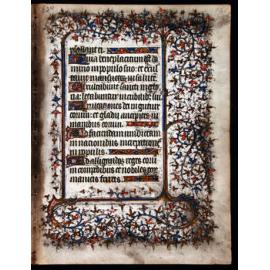 psallant ei.
Quia beneplacitum est do
mino in populo suo: et exal
tavit mansuetos in salute
Exultabunt sancti in glo
ria: letabuntur in cubilib; suis
exaltationes dei in gutture
eorum: et gladii ancipites in
manibus eorum.
Ad faciendam vindictam
in nationibus increpationes
in populis.
Ad alligandos reges eorum
in compedibus et nobiles eor
manicis ferreis.